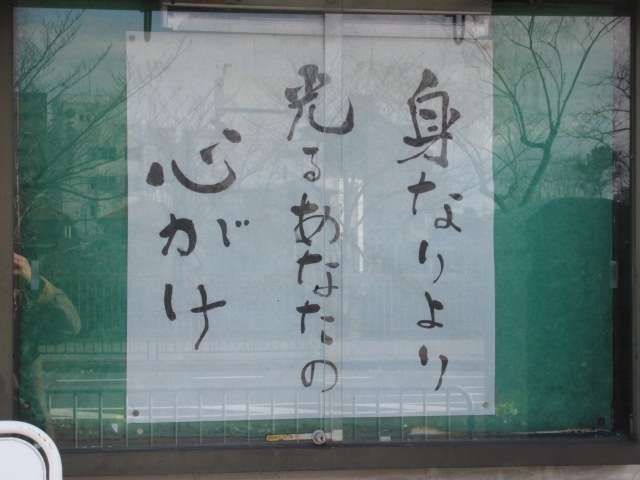 身なりより
光るあなたの
心がけ